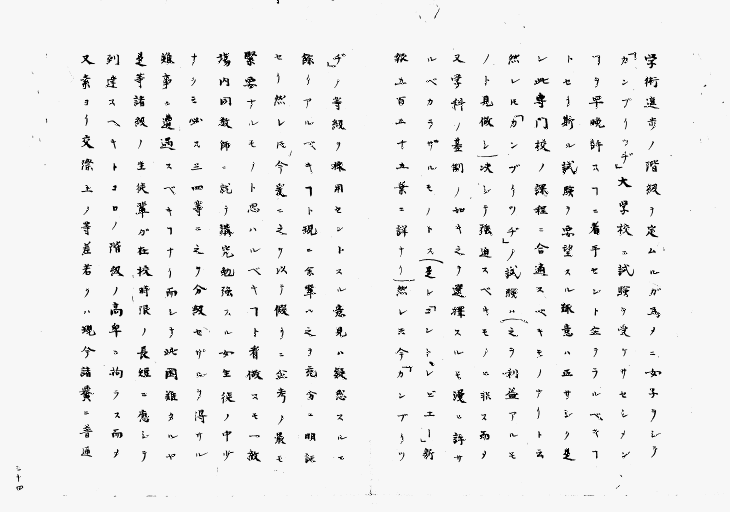 学術進歩ノ階級ヲ定ムルガ為メニ女子タシテ
「カンブリッヂ」大学校ニ試験ヲ受ケサセシメン
ヿヲ早晩許スヿニ着手セント企ヲラルベキヿ
トセリ斯ル試験ヲ要望スル趣意ハ正サシク是
レ此専門校ノ課程ニ合適スベキモノナリト云
然レ𪜈「カンブリッヂ」ノ試験ハ之ヲ利益アルモ
ノト見做シ決シテ強迫スベキモノニ非ス而メ
又学科ノ基制ノ如キ之ヲ選擇スルモ漫ニ許サ
ルベカラザルモノトス是レ「ニントレビエー」新
報五百五十五葉ニ詳ナリ然レ𪜈今「カンブリッ
ヂ」ノ等級ヲ採用セントスル意見ハ疑惑スルモ
餘リアルベキヿト現ニ余輩ハ之ヲ充分ニ明証
セリ然レ𪜈今爰ニ之ヲ以テ假リニ企考ノ最モ
緊要ナルモノト思ハルベキヿト看做スモ一教
場内同教師ニ就テ講究勉強スル女生徒ノ中少
ナクモ必ス三四等ニ之ヲ分級セザルヲ得サル
難事ニ遭遇スベキヿナリ而シテ此困難タルヤ
是等諸級ノ生徒輩ガ在校時限ノ長短ニ應シテ
列達スヘキトコロノ階級ノ高卑ニ拘ラス而メ
又素ヨリ交際上ノ等差若クハ現今諸費ニ普通
三十四